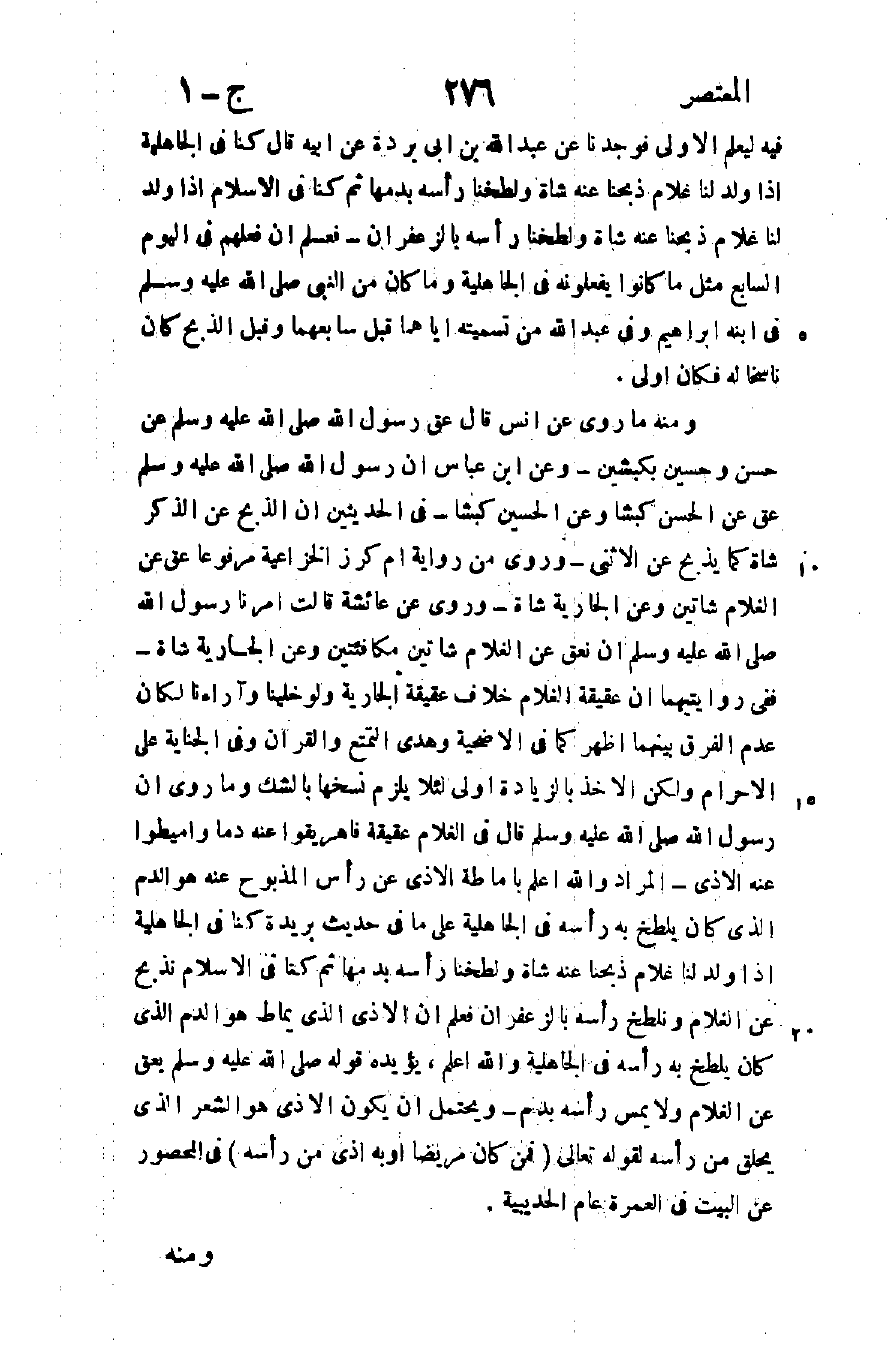 المعتصر ٢٧٦ ج - ١
فيه ليعلم الاولى فوجدنا عن عبدالله بن ابى بردة عن ابيه قال كنا فى الجاهلية
اذا ولد لنا غلام ذبحنا عنه شاة ولطخنا رأسه بدمها ثم كنا فى الاسلام اذا ولد
لنا غلام ذبحنا عنه شاة ولطخنا رأسه بالزعفران - فعلم ان فعلهم فى اليوم
السابع مثل ما كانوا يفعلونه فى الجاهلية وما كان من النبى صلى الله عليه وسلم
فى ابنه ابراهيم وفى عبدالله من تسميته اياهما قبل سابعهما وقبل الذبح كان ٥
ناسخا له فكان اولى .
ومنه ما روى عن انس قال عق رسول الله صلى الله عليه وسلم عن
حسن وحسين بكبشين - وعن ابن عباس ان رسول الله صلى الله عليه وسلم
عق عن الحسن كبشا وعن الحسين كبشا - فى الحديثين ان الذبح عن الذكر
شاة كما يذبح عن الانثى - وروى من رواية ام كرز الخزاعية مرفوعا عق عن ١٠
الغلام شاتين وعن الجارية شاة - وروى عن عائشة قالت امرنا رسول الله
صلى الله عليه وسلم ان نعق عن الغلام شاتين مكافئتين وعن الجارية شاة -
ففى روايتيهما ان عقيقة الغلام خلاف عقيقة الجارية ولو خلينا وآراءنا لكان
عدم الفرق بينهما اظهر كما فى الاضحية وهدى التمتع والقران وفى الجناية على
الاحرام ولكن الاخذ بالزيادة اولى لئلا يلزم نسخها بالشك وما روى ان ١٥
رسول الله صلى الله عليه وسلم قال فى الغلام عقيقة فاهريقوا عنه دما واميطوا
عنه الاذى - المراد والله اعلم باماطة الاذى عن رأس المذبوح عنه هو الدم
الذى كان يلطخ به رأسه فى الجاهلية على ما فى حديث بريدة كنا فى الجاهلية
اذا ولد لنا غلام ذبحنا عنه شاة ولطخنا رأسه بدمها ثم كنا فى الاسلام نذبح
عن الغلام ونلطخ رأسه بالزعفران فعلم ان الاذى الذى يماط هو الدم الذى ٢٠
كان يلطخ به رأسه فى الجاهلية والله اعلم ، يؤيده قوله صلى الله عليه وسلم يعق
عن الغلام ولا يمس رأسه بدم - ويحتمل ان يكون الاذى هو الشعر الذى
يحلق من رأسه لقوله تعالى ( فمن كان مريضا اوبه اذى من رأسه ) فى المحصور
عن البيت فى العمرة عام الحديبية .
ومنه